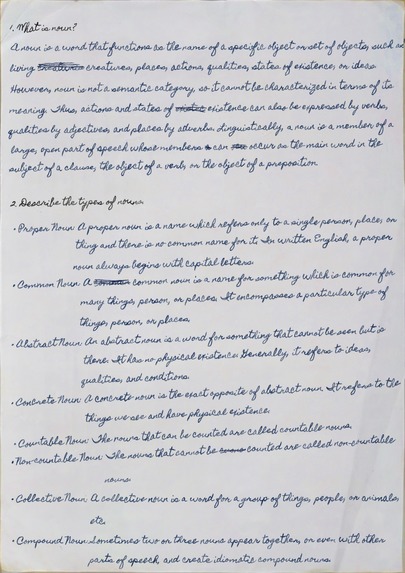 1. What is noun?
A noun is a word that functions as the name of a specific object or set of objects, such as
living creatures, places, actions, qualities, states of existence, or ideas.
However, noun is not a semantic category, so it cannot be characterized in terms of its
meaning. Thus, actions and states of existence can also be expressed by verbs,
qualities by adjectives, and places by adverbs. Linguistically, a noun is a member of a
large, open part of speech whose members can occur as the main word in the
subject of a clause, the object of a verb, or the object of a preposition.
2. Describe the types of nouns.
• Proper Noun: A proper noun is a name which refers only to a single person, place, or
thing and there is no common name for it. In written English, a proper
noun always begins with capital letters.
• Common Noun: A common noun is a name for something which is common for
many things, person, or places. It encompasses a particular type of
things, person, or places.
• Abstract Noun: An abstract noun is a word for something that cannot be seen but is
there. It has no physical existence. Generally, it refers to ideas,
qualities, and conditions.
• Concrete Noun: A concrete noun is the exact opposite of abstract noun. It refers to the
things we see and have physical existence.
• Countable Noun: The nouns that can be counted are called countable nouns.
• Non-countable Noun: The nouns that cannot be counted are called non-countable
nouns.
• Collective Noun: A collective noun is a word for a group of things, people, or animals,
etc.
• Compound Noun: Sometimes two or three nouns appear together, or even with other
parts of speech, and create idiomatic compound nouns.